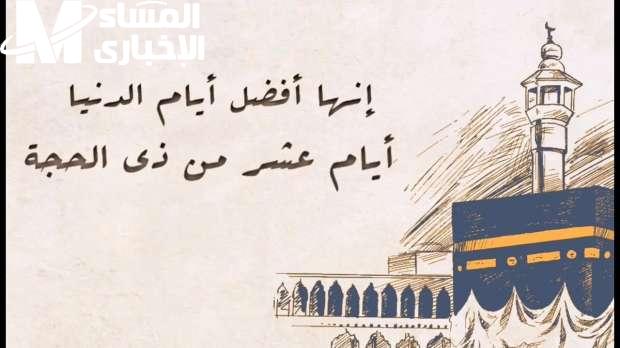 المساء
الإخبارى
إنها أفضل أيام الدنيا
أيام عشر من ذى الحجة